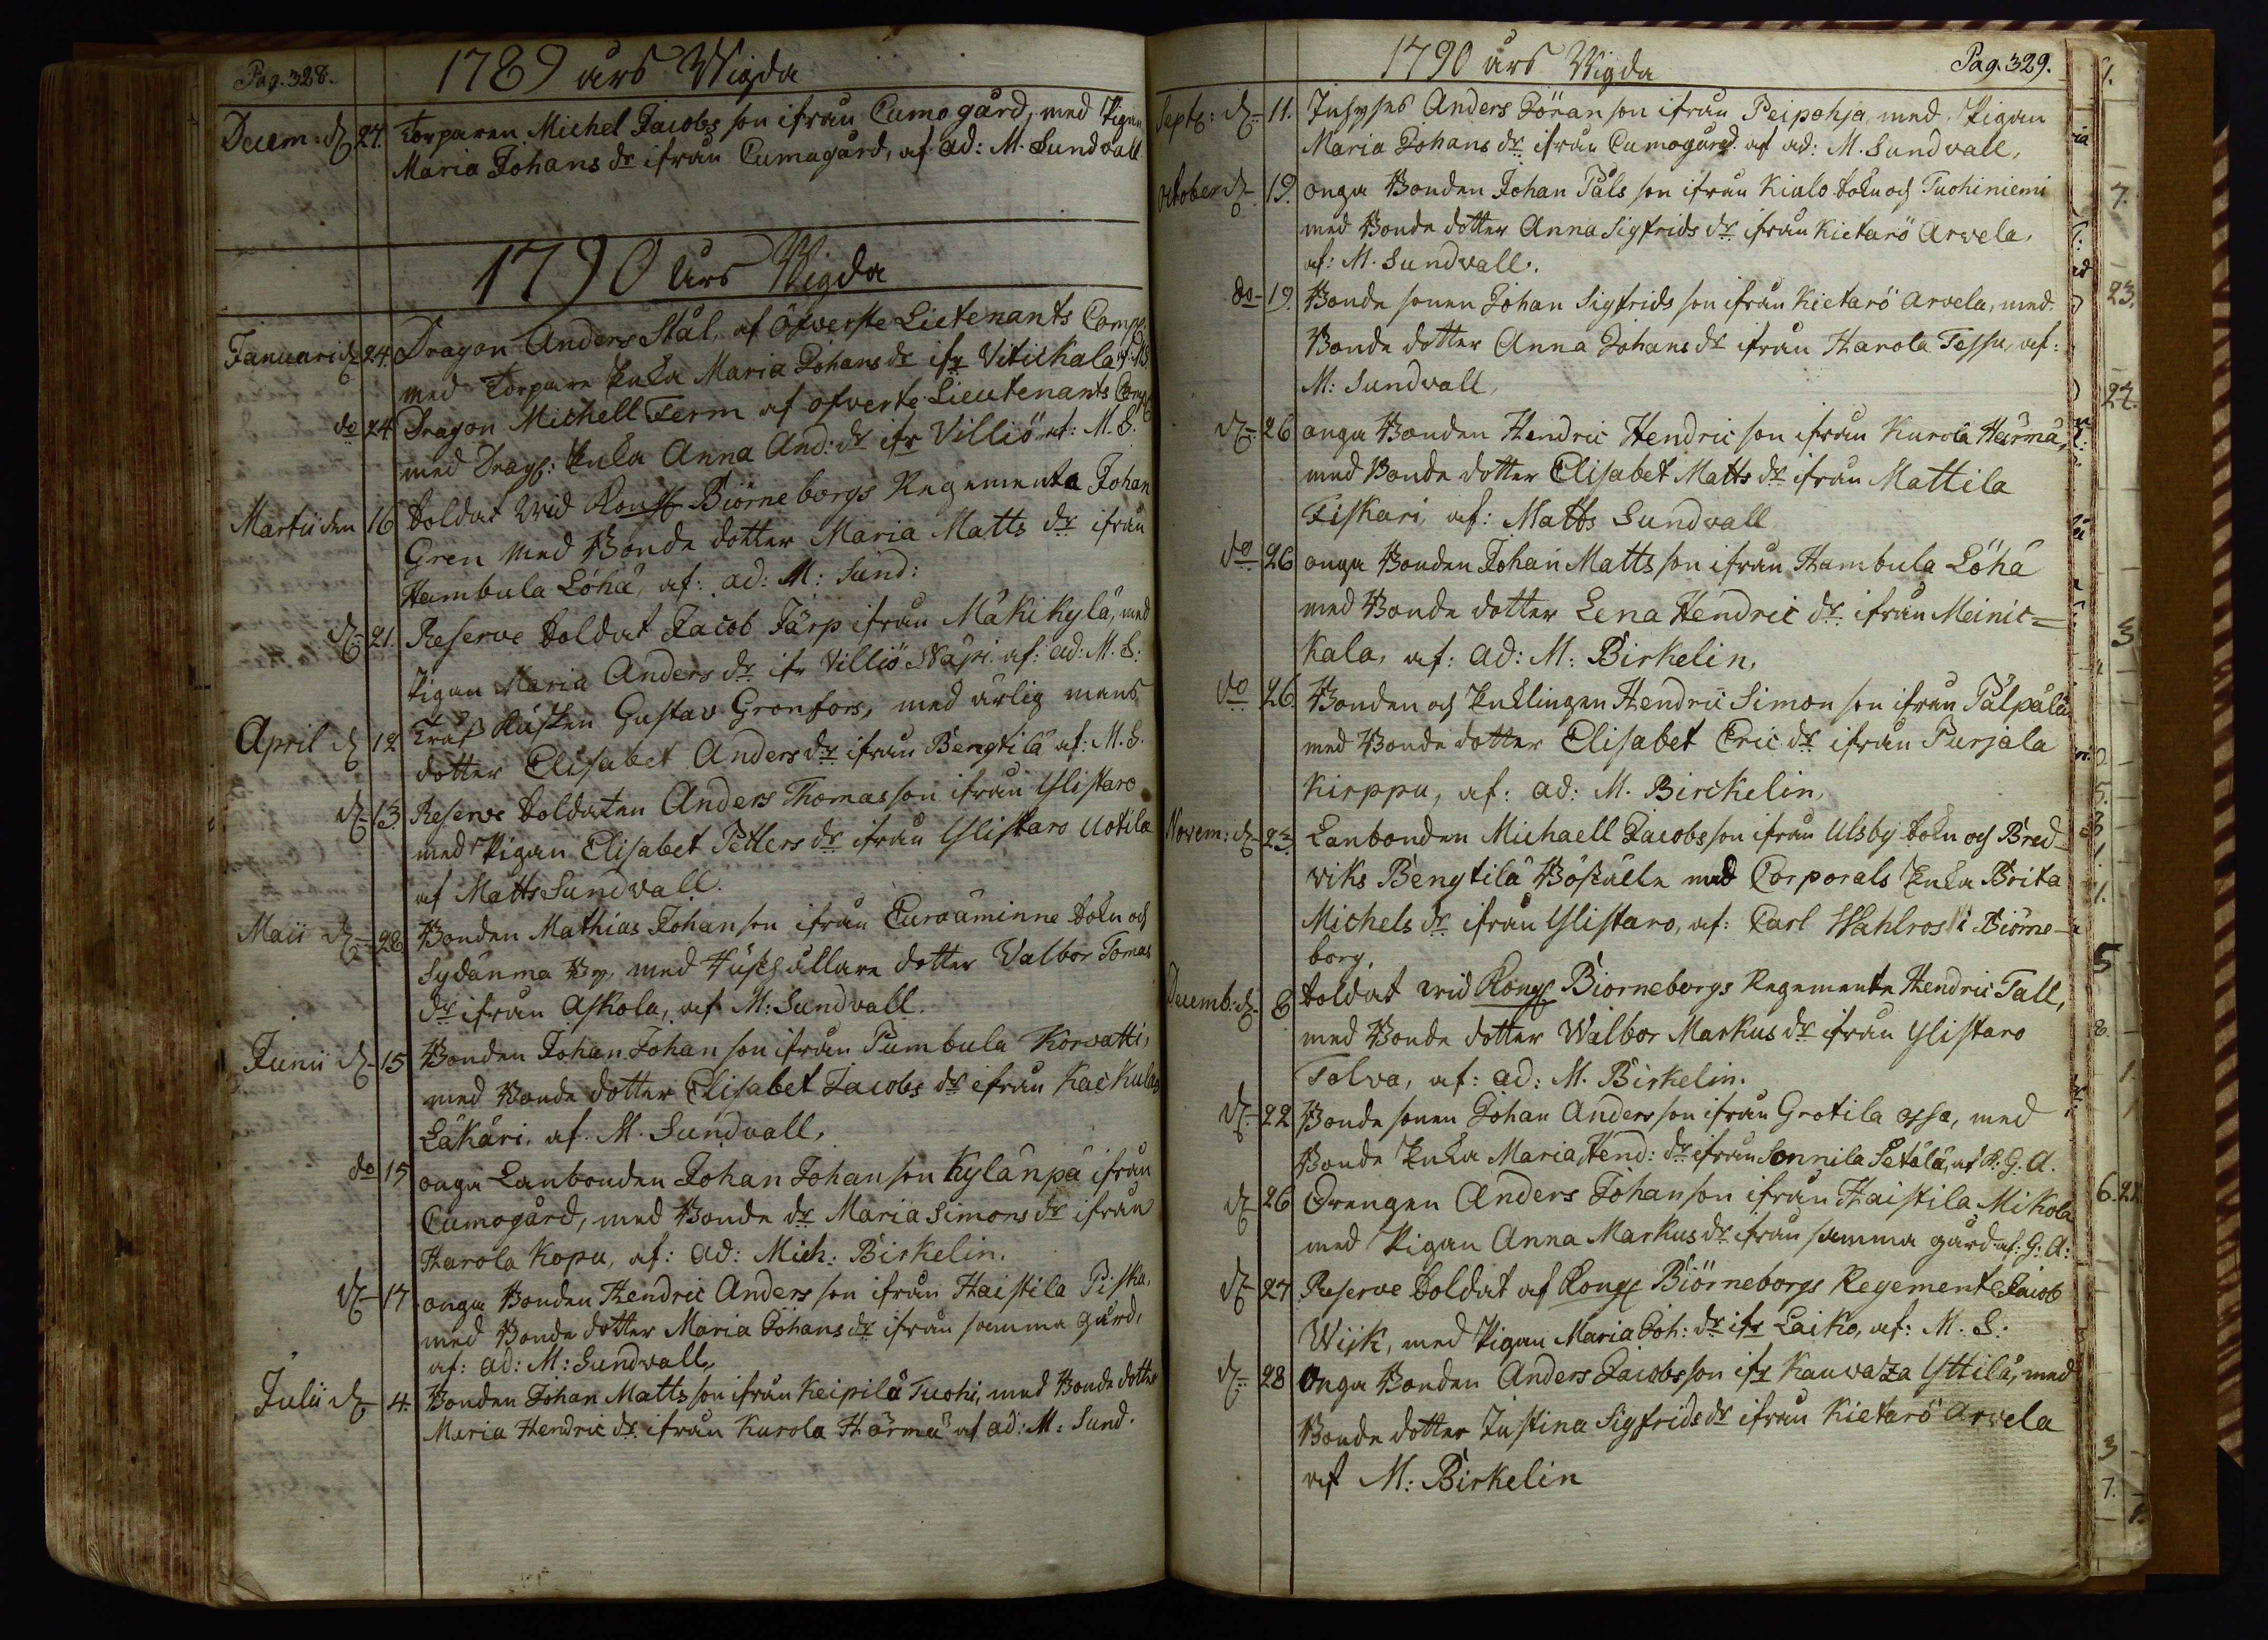 Pag. 328.
1789 års Wigda
Decem: d 27. Torparen Michel Jacobs son ifrån Cumo gård, med Pigan
Maria Johans dr ifrån Cumogård, af ad: M. Sundvall
1790 års Wigda
Januari d 24. Dragon Anders Stål, af öfverste Lietenants Comp:
med Torpare Enka Maria Johans dr ifr Vitickala af: M.S.
do 24 Dragon Michell Ferm af ofverte Lieutenants Comp
med Drag: Enka Anna And: dr ifr Villiö af: M. S.
Martii den 16 Soldat vid Kongl Biörneborgs Regemente Johan
Gren med Bonde dotter Maria Matts dr ifrån
Hambula Löhä, af: ad: M: Sund:
d 21. Reserve Soldat Jacob Järp ifrån Mäkikylä, med
Pigan Maria Anders dr ifr Villiö Näpi af: ad: M. S:
April d 12 Gustav Gronfors, med ärlig mans
dotter Elisabet Anders dr ifrån Bengtilä af: M. S.
d 13. Reserve Soldaten Anders Thomas son ifrån Ylistaro
med Pigan Elisabet Petters dr ifrån Ylistaro Uotila
af Matts Sundvall.
Maii d 28 Bonden Mathias Johan son ifrån Euroåminne Sokn och
Sydänma By, med Hushållare dotter Valbor Tomas
dr ifrån Askola, af M: Sundvall.
Junii d 15 Bonden Johan Johan son ifrån Pumbula Korvatti,
med Bonde dotter Elisabet Jacobs dr ifrån Kackulas
Läkäri, af. M. Sundvall,
do 15 onga Lanbonden Johan Johan son Kylänpä ifrån
Cumogård, med Bonde dr Maria Simons dr ifrån
Harola Kopu, af: ad: Mich: Birkelin.
d 17 onga Bonden Hendric Anders son ifrån Haistila Piska,
med Bonde dotter Maria Johans dr ifrån samma gård,
af: ad: M: Sundvall,
Julii d 4. Bonden Johan Matts son ifrån Keipilä Tuohi, med Bonde dotter
Maria Hendric dr ifrån Kurola Härmä af ad: M: Sund.
1790 års Wigda
Pag. 329.
Sept: d 11. Inhyses Anders Jöran son ifrån Peipohja, med Pigan
Maria Johans dr ifrån Cumogård af ad: M. Sundvall,
October d 19. onga Bonden Johan Påls son ifrån Kiulo Sokn och Tuohiniemi
med Bonde dotter Anna Sigfrids dr ifrån Kietarö Arvela,
af: M. Sundvall.
do 19. Bonde sonen Johan Sigfrids son ifrån Kietarö Arvela, med
Bonde dotter Anna Johans dr ifrån Harola Jessu, af:
M: Sundvall,
d 26 onga Bonden Hendric Hendric son ifrån Kurola Härmä,
med Bonde dotter Elisabet Matts dr ifrån Mattila
Fiskari, af: Matts Sundvall
do 26 onga Bonden Johan Matts son ifrån Hambula Löhä
med Bonde dotter Lena Hendric dr ifrån Meinic=
kala, af: ad: M: Birkelin,
do 26. Bonden och Enklingen Hendric Simon son ifrån Pälpälä
med Bonde dotter Elisabet Eric dr ifrån Purjala
Kirppu, af: ad: M. Birckelin,
Novem: d 23. Lanbonden Michaell Jacobs son ifrån Ulsby Sokn och Bred-
viks Bengtilä Böställe med Corporals Enka Brita
Michels dr ifrån Ylistaro, af: Carl Wahlros i Biörne-
borg.
Decemb: d 8 Soldat vid Kongl Biorneborgs Regemente Hendric Tall,
med Bonde dotter Walbor Markus dr ifrån Ylistaro
Tolva, af: ad: M. Birkelin.
d 22 Bonde sonen Johan Anders son ifrån Grotila ossa, med
Bonde Enka Maria Hend: dr ifrån Sonnila Setälä, af P: G. A.
d 26 Drengen Anders Johan son ifrån Haistila Mikola
med Pigan Anna Markus dr ifrån samma gård af: G: A:
d 27 Reserve Soldat af Kongl Biörneborgs Regemente Jacob
Wiik, med Pigan Maria Joh: dr ifr Laiko, af: M. S:
d 28 onga Bonden Anders Jacobs son ifr Kauvatza Yttilä, med
Bonde dotter Justina Sigfrids dr ifrån Kietarö Arvela
af M: Birkelin